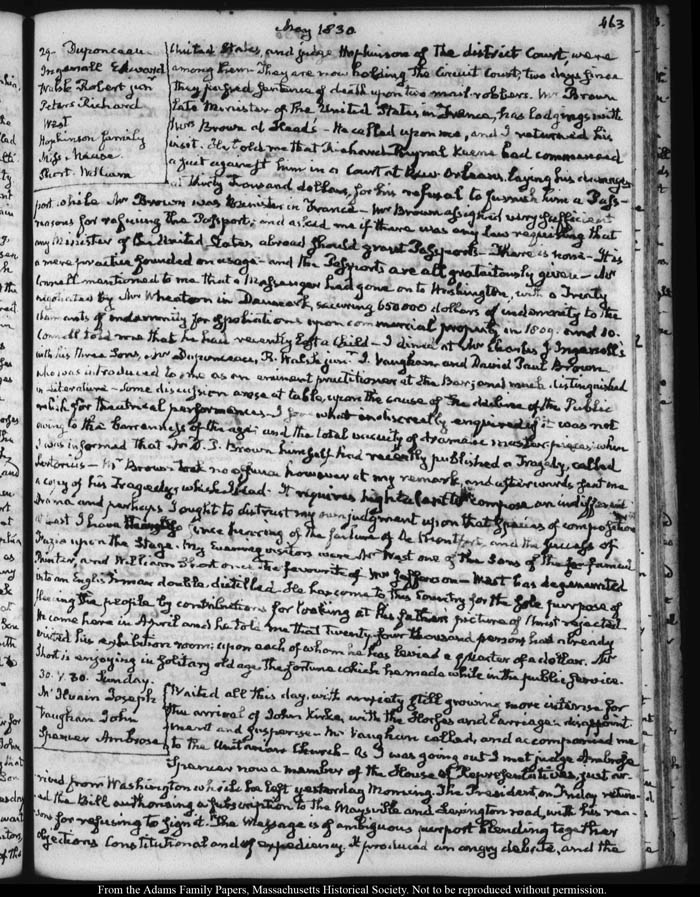 May 1830
463
29. Duponceau
Ingersoll Edward
Walsh Robert jun
Peters Richard
West
Hopkinson family
Miss Nause
Short. William
United States, and judge Hopkinson of the district Court, were
among them. They are now holding the Circuit Court; two days since
they passed Sentence of death upon two mail-robbers. Mr Brown
late Minister of the United States in France, has lodgings with
Mrs Brown at Head's. He called upon me, and I returned his
visit. He told me that Richard Raynal Keene had commenced
a suit against him in a Court at New Orleans. laying his damages
at thirty thousand dollars, for his refusal to furnish him a Pass-
port while Mr Brown was Minister in France. Mr Brown assigned very sufficient
reasons for refusing the Passport; and asked me if there was any law requiring that
any Minister of the United States abroad should grant Passports. There is none. It is
a mere practice founded on usage. and the Passports are all gratuitously given. Mr
Connell mentioned to me that a Messenger had gone on to Washington, with a Treaty
negotiated by Mr Wheaton in Danmark, securing 650000 dollars of indemnity to the
claimants of indemnity for spoliations upon commercial property in 1809. and 10.
Connell told me that he had recently lost a Child. I dined at Mr Charles J Ingersoll's
with his three Sons, Mr Duponceau, R. Walsh jun. J. Vaughan and David Paul Brown
who was introduced to me as an eminent practitioner at the Bar, and much distinguished
in Literature. Some discussion arose at table, upon the cause of the decline of the Public
relish for theatrical performances. I somewhat indiscreetly enquired if it was not
owing to the barrenness of the age; and the total vacuity of dramatic master pieces; when
I was informed that Mr D. P. Brown himself had recently published a Tragedy, called
Sertorius. Mr Brown took no offence however at my remark, and afterwards sent me
a copy of his Tragedy, which I read. It requires high talent to compose an indifferent
drama and perhaps I ought to distrust my own judgment upon that species of composition
at least I have thought so since hearing of the failure of De Montfort, and the success of
Fazio upon the Stage. My Evening visitors were Mr West one of the Sons of the far-famed
Painter, and William Short once the favourite of Mr Jefferson. West has degenerated
into an Englishman double distilled. He has come to this Country for the sole purpose of
fleecing the people by contributions for looking at his father's picture of Christ rejected.
He came here in April and he told me that twenty-four thousand persons had already
visited his exhibition room; upon each of whom he has levied a quarter of a dollar. Mr
Short is enjoying in solitary old age the fortune which he made while in the public Service.
30. V. 30. Sunday.
Mc Ilvain Joseph
Vaughan John
Spencer Ambrose
Waited all this day, with anxiety still growing more intense for
the arrival of John Kirke, with the Horses and Carriage. disappoint-
ment and suspense. Mr Vaughan called, and accompanied me
to the Unitarian Church. As I was going out I met judge Ambrose
Spencer now a member of the House of Representatives, just ar-
rived from Washington which he left yesterday Morning. The President on Friday return-
ed the Bill authorising a subscription to the Maysville and Lexington road, with his rea-
sons for refusing to sign it. The Message is of ambiguous purport blending together
objections Constitutional and of expediency. It produced an angry debate, and the
From the Adams Family Papers, Massachusetts Historical Society. Not to be reproduced without permission.